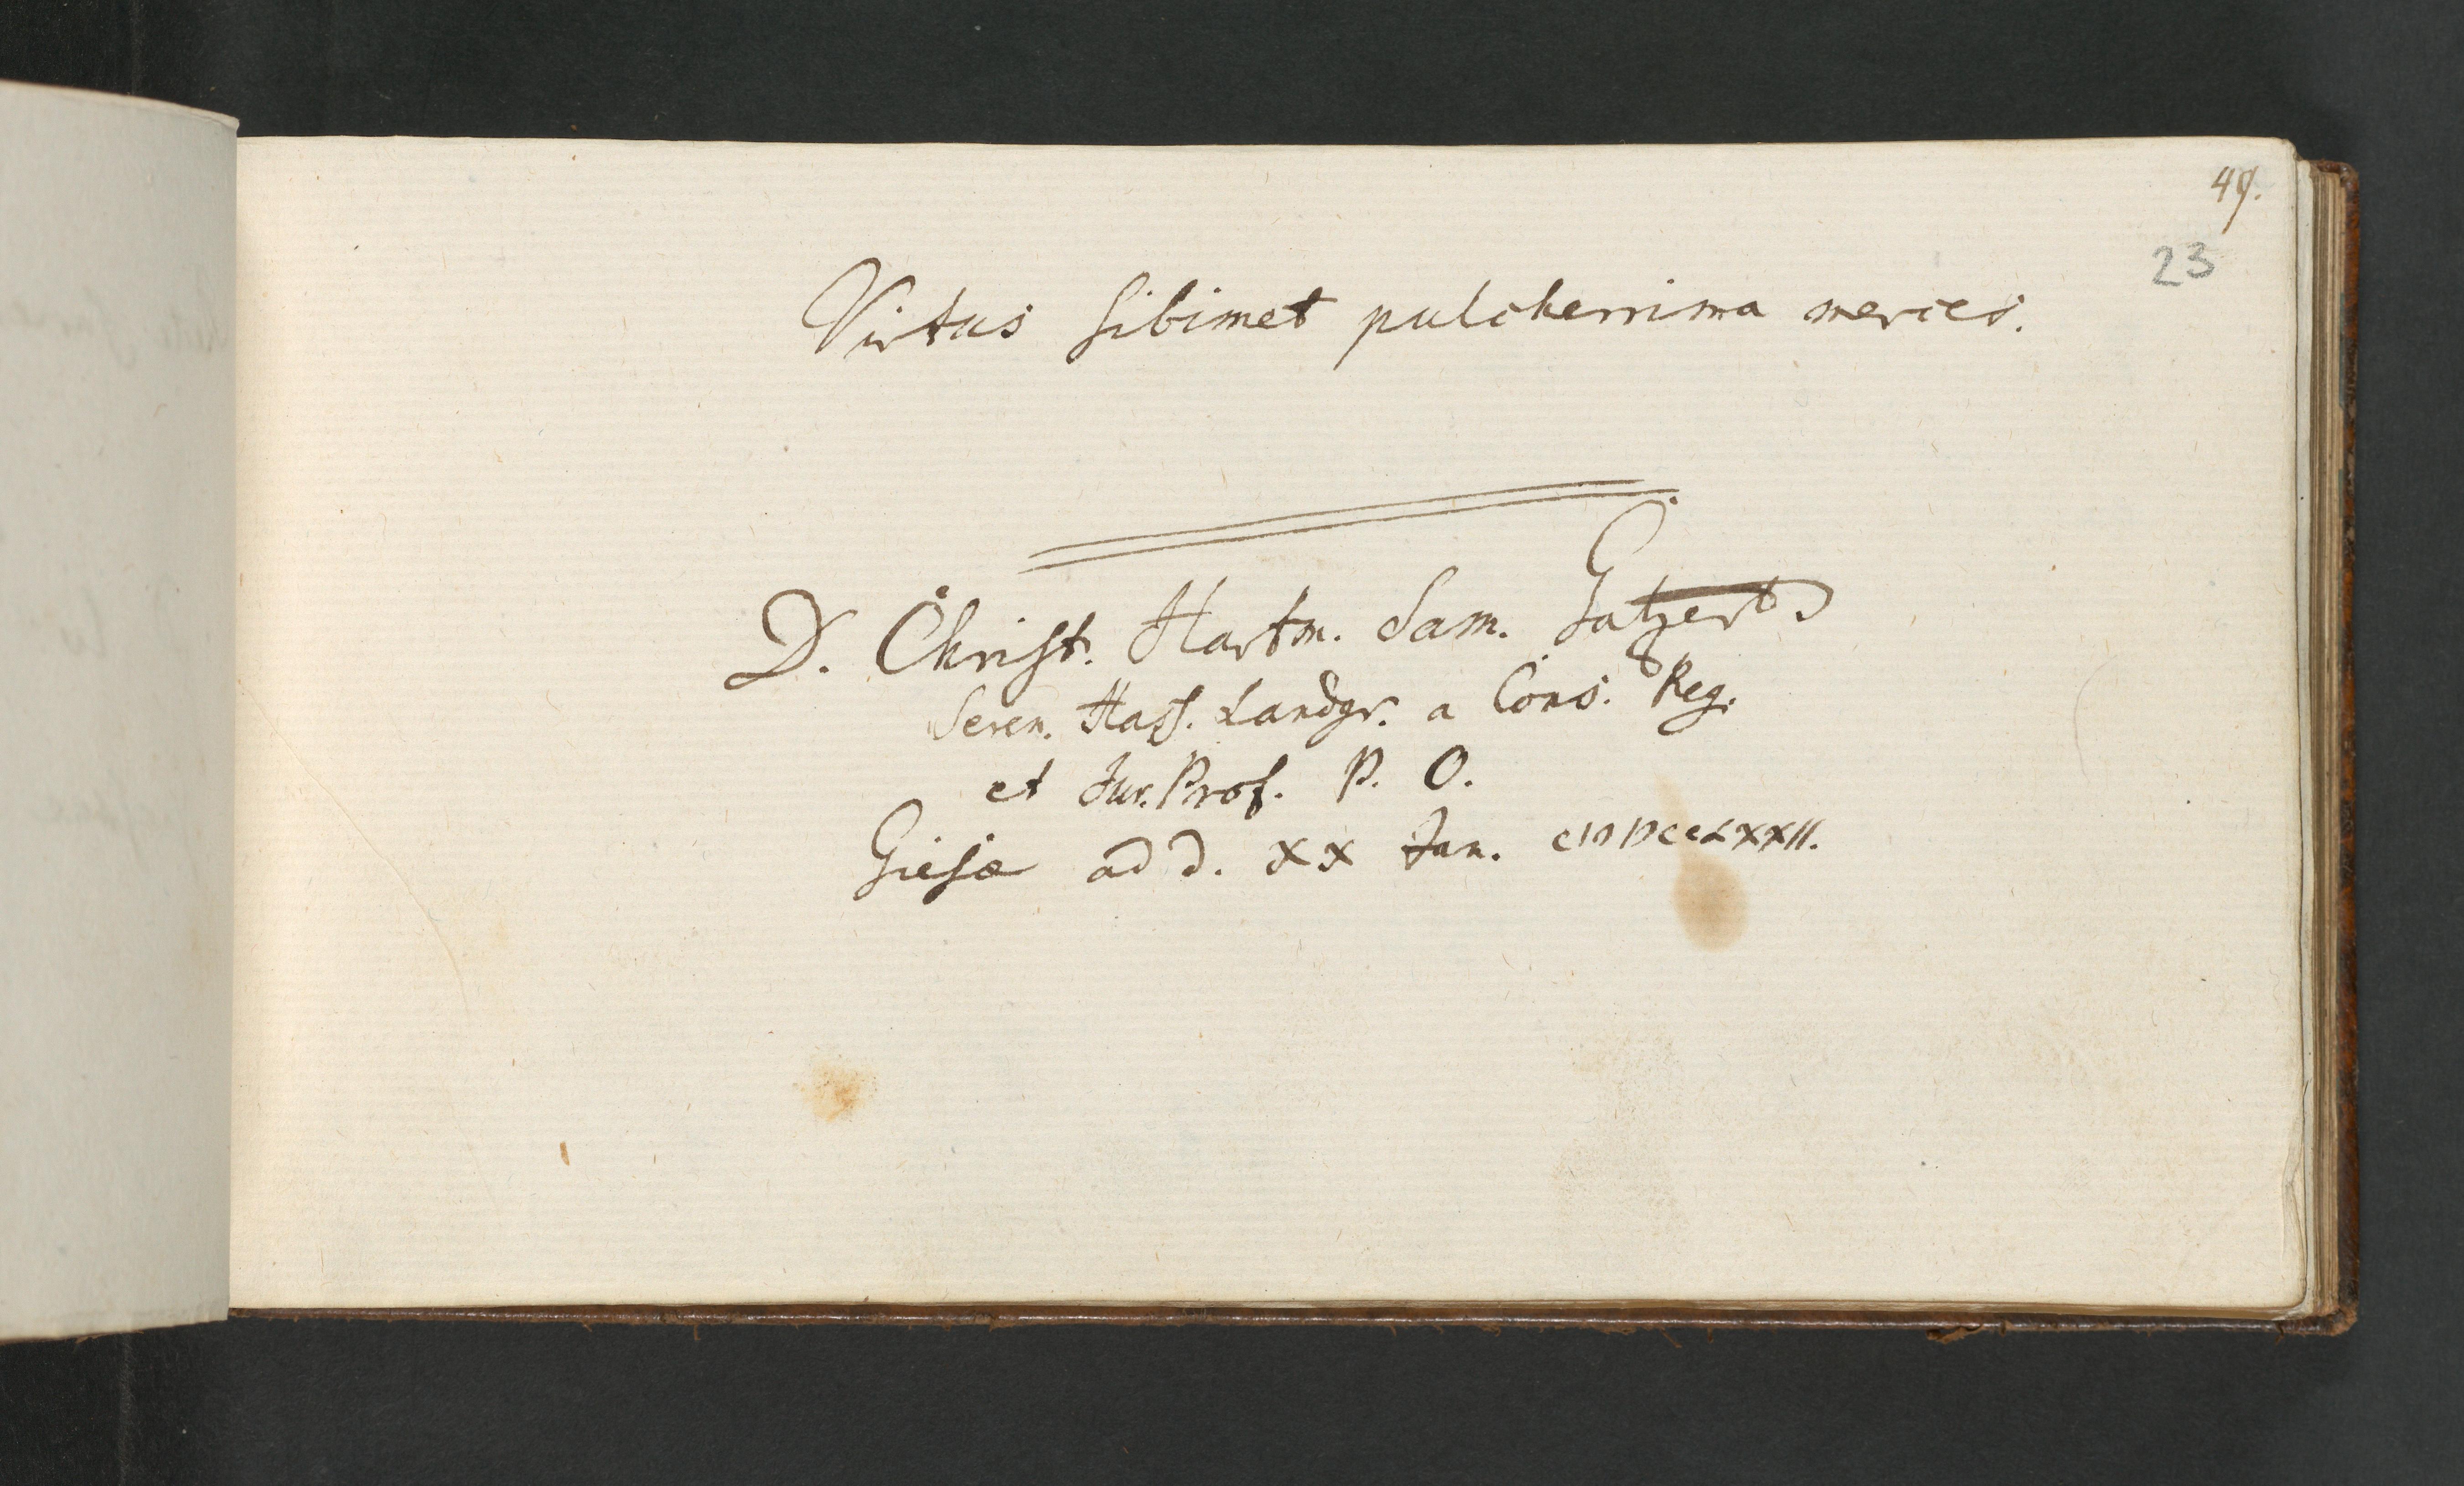 49.
23
Virtus sibimet pulcherrima merces.
D. Christ. Hartm. Sam. Gatzert
Seren. Hass. Landgr. a Cons. Reg.
et Jur. Prof. P. O.
Giesæ ad d. XX Jan. CIↃIↃCCLXXII.